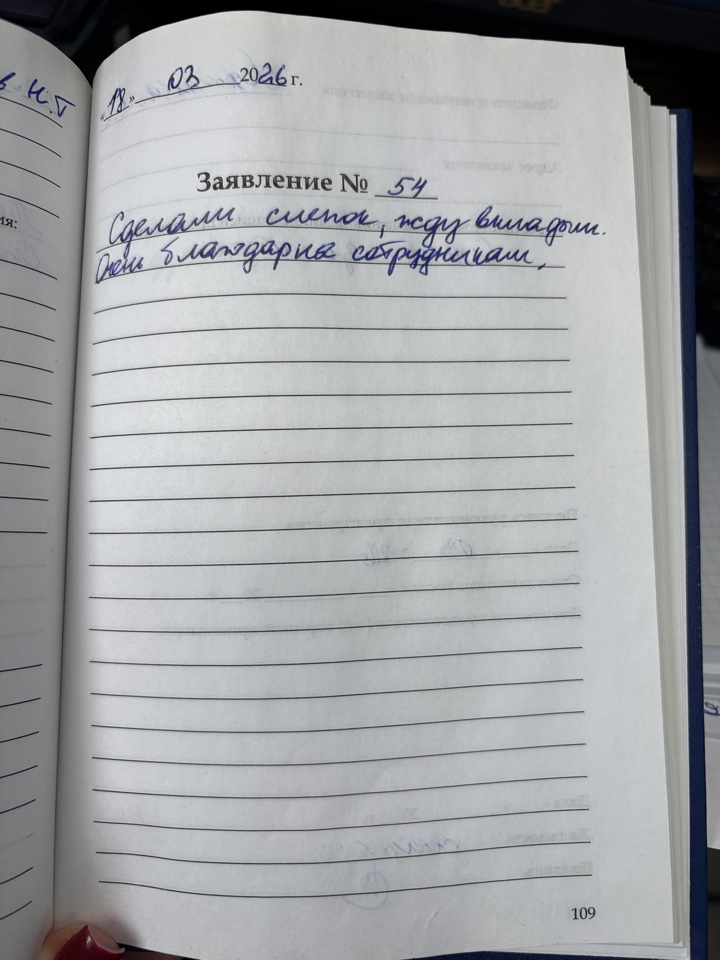 в Н.Т
«18» 03 2026 г.
ия:
Заявление № 54
Сделали слепок, жду вкладыш.
Очень благодарна сотрудникам.
109